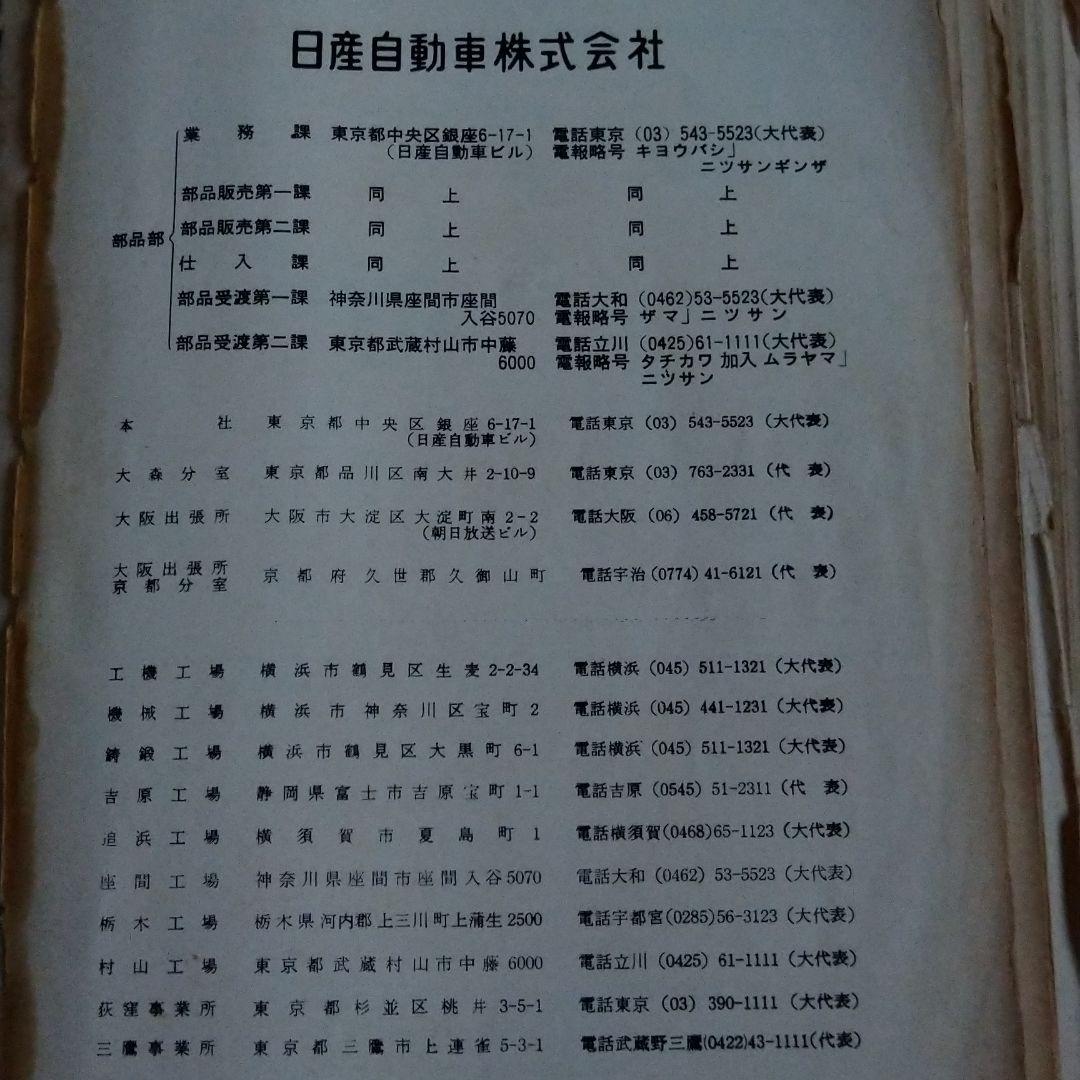 日産自動車株式会社
業務課 東京都中央区銀座6-17-1 電話東京 (03) 543-5523(大代表)
(日産自動車ビル) 電報略号 キヨウバシ」
ニツサンギンザ
部品販売第一課 同上 同上
部品販売第二課 同上 同上
部品部
仕入課 同上 同上
部品受渡第一課 神奈川県座間市座間 電話大和 (0462)53-5523(大代表)
入谷5070 電報略号 ザマ」ニツサン
部品受渡第二課 東京都武蔵村山市中藤 電話立川 (0425)61-1111(大代表)
6000 電報略号 タチカワ 加入 ムラヤマ」
ニツサン
本社 東京都中央区銀座6-17-1 電話東京 (03) 543-5523 (大代表)
(日産自動車ビル)
大森分室 東京都品川区南大井2-10-9 電話東京 (03) 763-2331 (代表)
大阪出張所 大阪市大淀区大淀町南2-2 電話大阪 (06) 458-5721 (代表)
(朝日放送ビル)
大阪出張所
京都分室 京都府久世郡久御山町 電話宇治 (0774) 41-6121 (代表)
工機工場 横浜市鶴見区生麦2-2-34 電話横浜 (045) 511-1321 (大代表)
機械工場 横浜市神奈川区宝町2 電話横浜 (045) 441-1231 (大代表)
鋳鍛工場 横浜市鶴見区大黒町6-1 電話横浜 (045) 511-1321 (大代表)
吉原工場 静岡県富士市吉原宝町1-1 電話吉原 (0545) 51-2311 (代表)
追浜工場 横須賀市夏島町1 電話横須賀(0468)65-1123 (大代表)
座間工場 神奈川県座間市座間入谷5070 電話大和 (0462) 53-5523 (大代表)
栃木工場 栃木県河内郡上三川町上蒲生2500 電話宇都宮(0285)56-3123 (大代表)
村山工場 東京都武蔵村山市中藤6000 電話立川 (0425) 61-1111 (大代表)
荻窪事業所 東京都杉並区桃井3-5-1 電話東京 (03) 390-1111 (大代表)
三鷹事業所 東京都三鷹市上連雀5-3-1 電話武蔵野三鷹(0422)43-1111(代表)